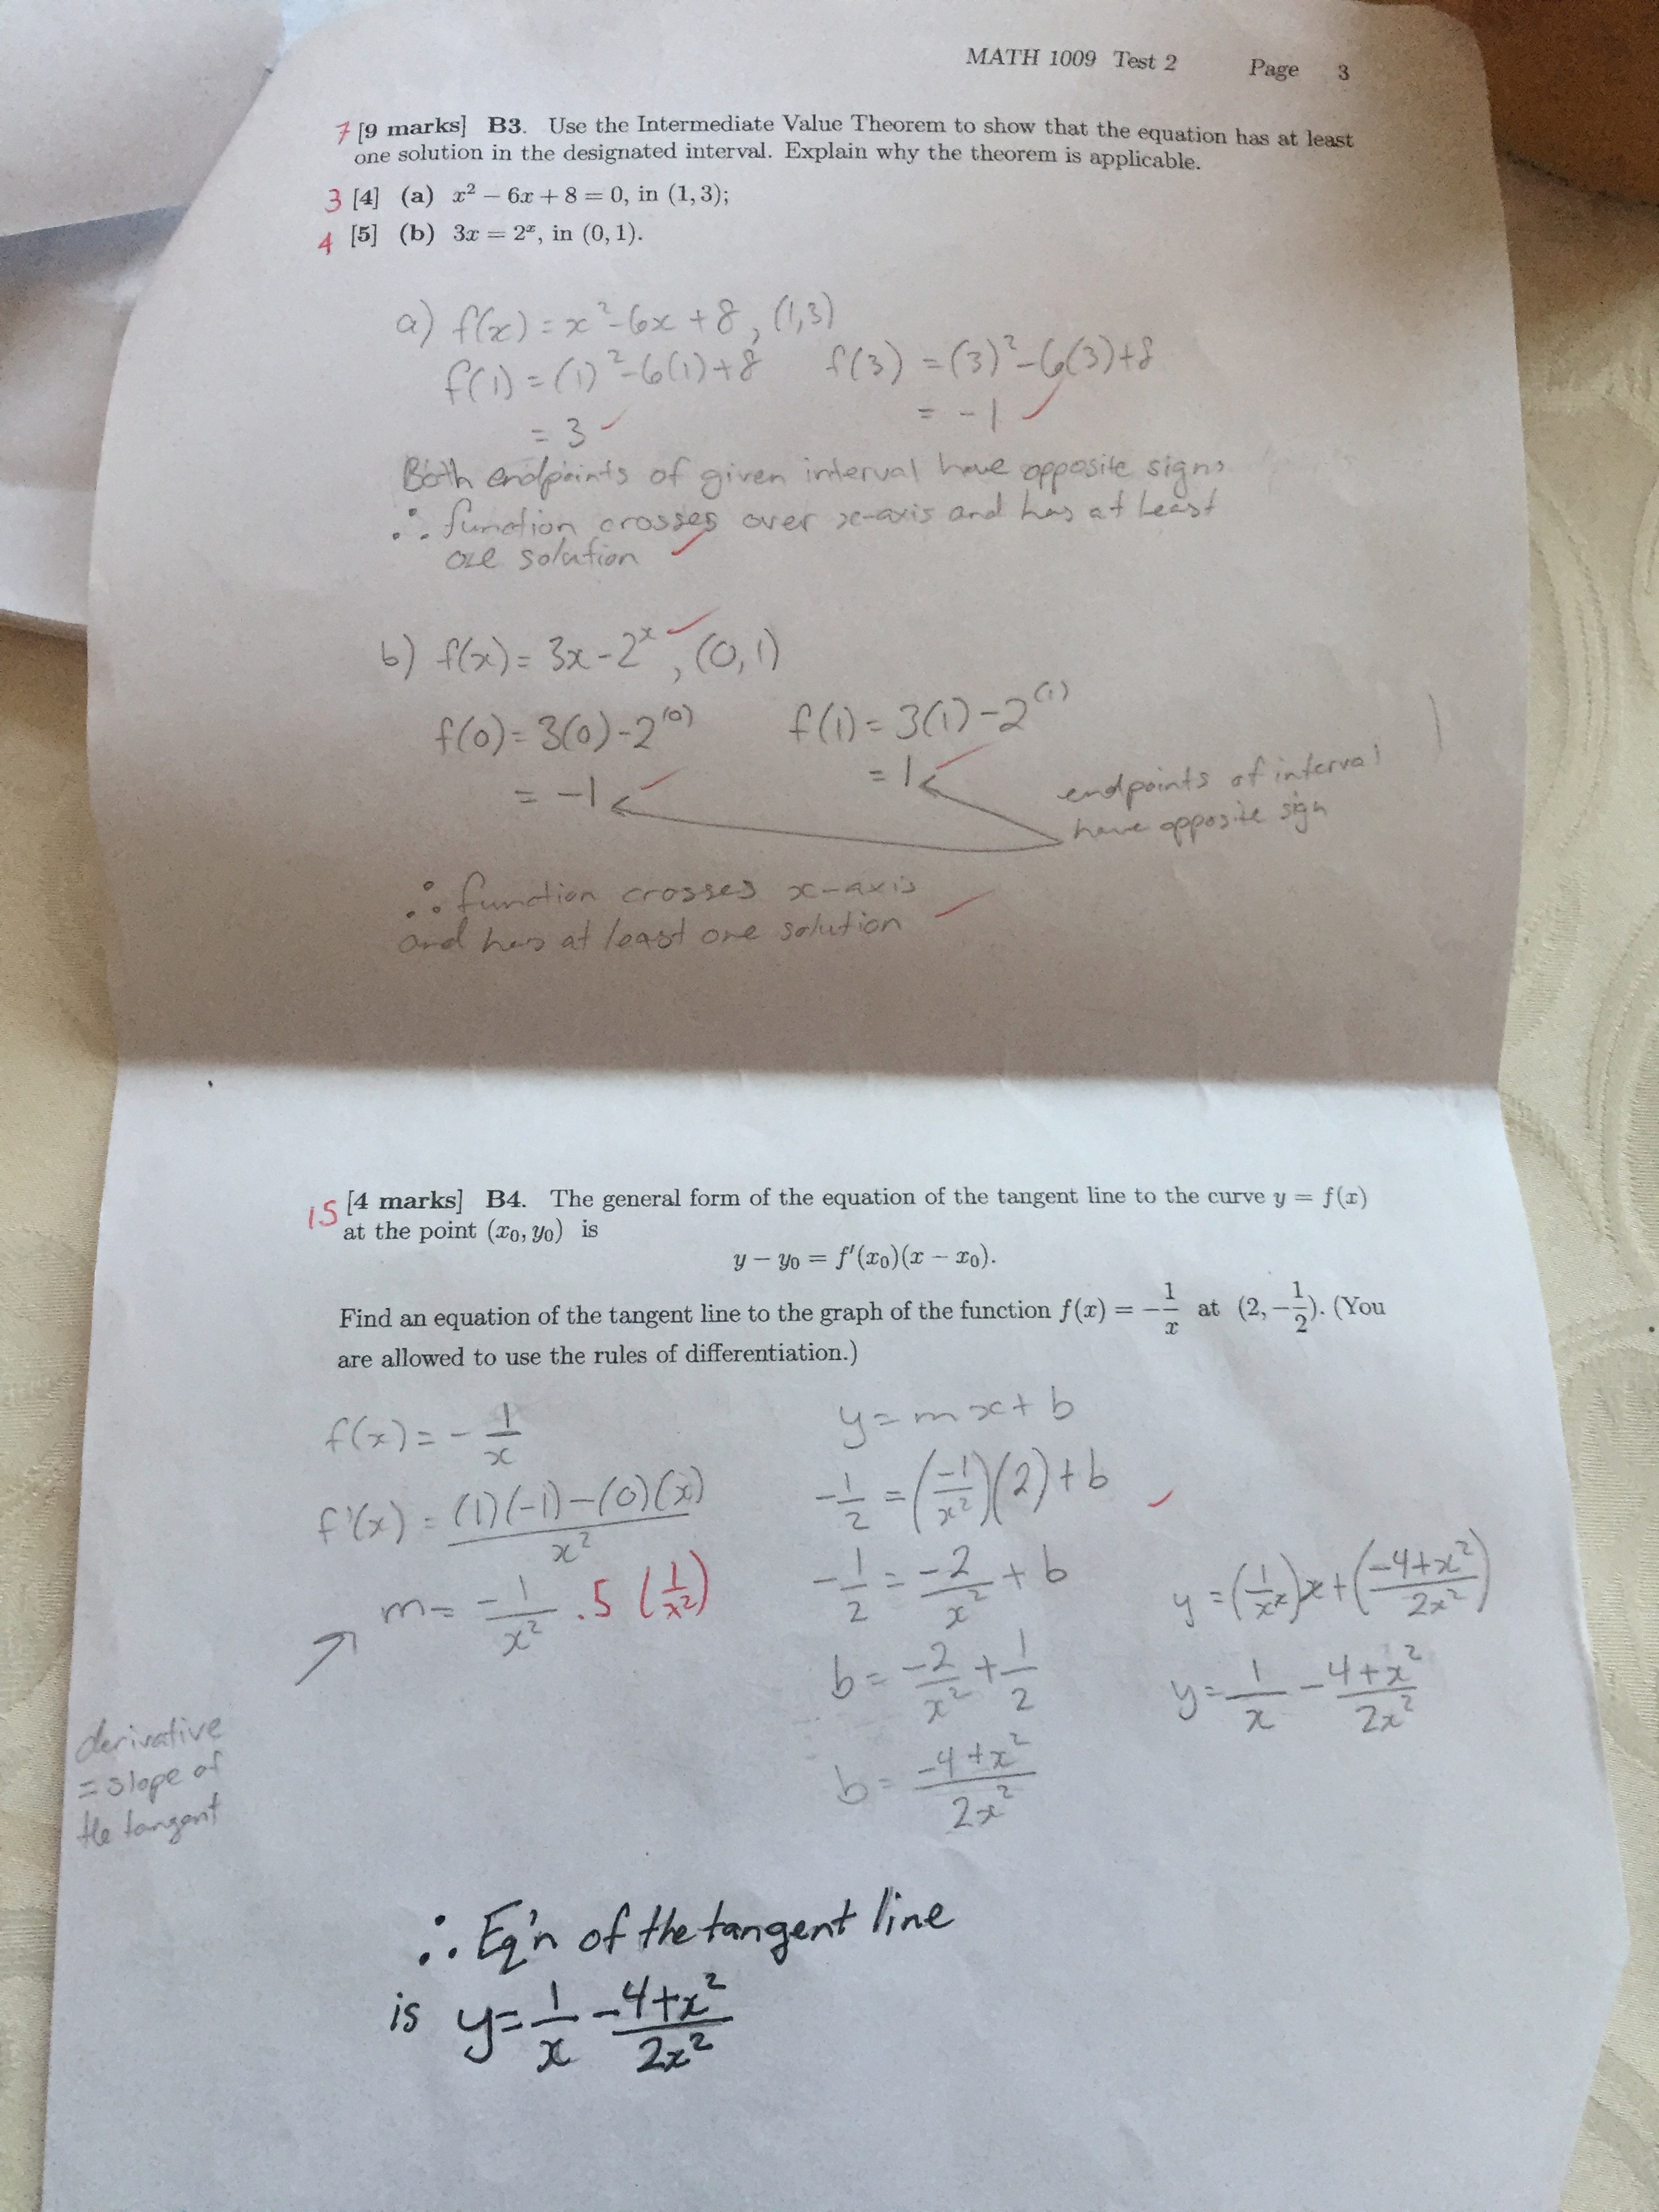 MATH 1009 Test 2 Page 3
7 [9 marks] B3. Use the Intermediate Value Theorem to show that the equation has at least
one solution in the designated interval. Explain why the theorem is applicable.
3 [4] (a) x² − 6x + 8 = 0, in (1, 3);
4 [5] (b) 3x = 2ˣ, in (0, 1).
a) f(x) = x² - 6x + 8, (1,3)
f(1) = (1)² - 6(1) + 8 f(3) = (3)² - 6(3) + 8
= 3 ✓ = -1 ✓
Both endpoints of given interval have opposite signs
∴ function crosses over x-axis and has at least
one solution ✓
b) f(x) = 3x - 2ˣ ✓, (0,1)
f(0) = 3(0) - 2⁽⁰⁾ f(1) = 3(1) - 2⁽¹⁾
= -1 ✓ = 1 ✓ endpoints of interval
have opposite sign
∴ function crosses x-axis
and has at least one solution ✓
15 [4 marks] B4. The general form of the equation of the tangent line to the curve y = f(x)
at the point (x₀, y₀) is
y − y₀ = f′(x₀)(x − x₀).
Find an equation of the tangent line to the graph of the function f(x) = −1/x at (2, −1/2). (You
are allowed to use the rules of differentiation.)
f(x) = - 1/x
f'(x) = (1)(-1) - (0)(x) / x²
m = -1/x² .5 (1/x²)
derivative
= slope of
the tangent
y = mx + b
-1/2 = (-1/x²)(2) + b ✓
-1/2 = -2/x² + b
b = -2/x² + 1/2
b = -4+x² / 2x²
y = (1/x²)x + (-4+x² / 2x²)
y = 1/x - 4+x² / 2x²
∴ Eq'n of the tangent line
is y = 1/x - 4+x² / 2x²